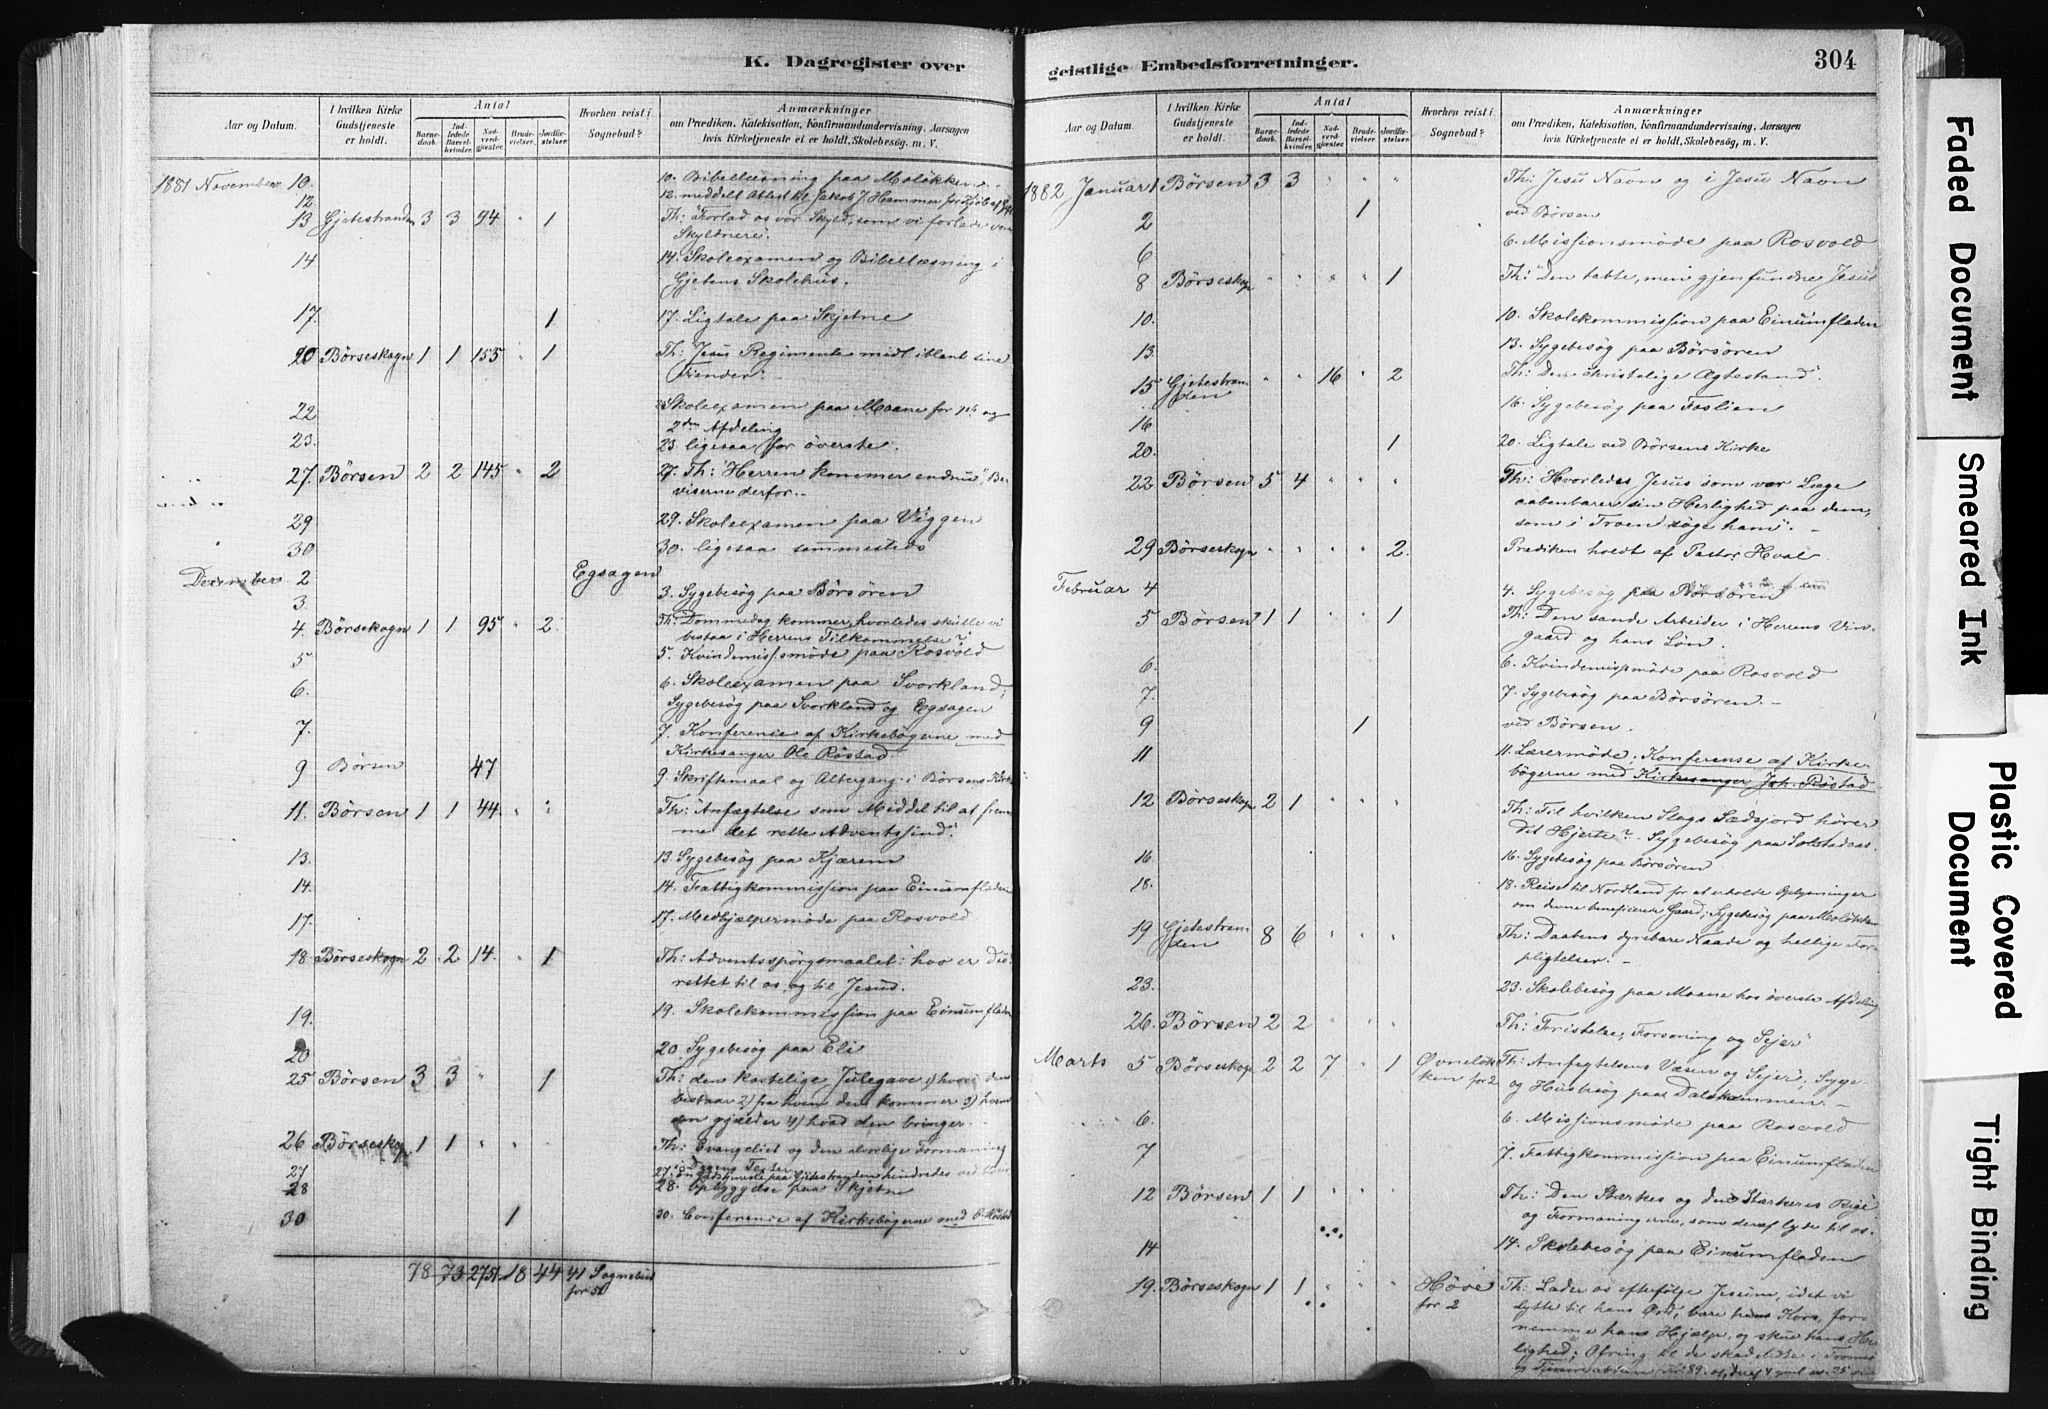 K. Dagregister over
Aar og Datum.
I hvilken Kirke Gudstjeneste er holdt.
Antal
Barnedaab.
Indledede Barselkvinder.
Nadverdgjester.
Brudevielser.
Jordfæstelser.
Hvorhen reist i Sognebud?
Anmærkninger
om Prædiken, Katekisation, Konfirmandundervisning, Aarsagen
hvis Kirketjeneste ei er holdt, Skolebesøg, m. V.
1881 November 10. 10. Bibellæsning paa Moløkken
12 12. meddelt Attest til Jakob J. Hammer
13 Gjetestranden 3 3 94 " 1 Th: "Forlad os vor Skyld, som vi forlade vore
Skyldnere".
14 14. Skoleexamen og Bibellæsning i
Gjetens Skolehus.
17. 1 17. Ligtale paa Skjetne
20 Børseskogn 1 1 153 " 1 Th: Jesu Regimente midt iblant sine
Fiender".
22 Skoleexamen paa Moane for 1ste og
2den Afdeling
23. 23. ligesaa for øverste.
27. Børsen 2 2 145 " 2 27. Th: "Herren kommer endnu", Be-
viserne derfor.
29 29. Skoleexamen paa Viggen
30 30. ligesaa sammesteds
December 2 Egsagen
3. 3. Sygebesøg paa Børsøren
4. Børsekogn 1 1 95 " 2 Th: "Dommedag kommer, hvorledes skulle vi
bestaa i Herrens Tilkommelse"?
5 5. Kvindemissj.møde paa Rosvold
6. 6. Skoleexamen paa Svorkland;
Sygebesøg paa Svorkland og Egsagen
7. 7. Konference af Kirkebøgerne med
Kirkesanger Ole Røstad
9 Børsen 47 9. Skriftemaal og Altergang i Børsens Kirke
11. Børsen 1 1 44 " " Th: "Anfægtelse som Middel til at frem-
me det rette Adventssind".
13. 13. Sygebesøg paa Kjærem
14. 14. Fattigkommission paa Einumfladen
17. 17. Medhjælpermøde paa Rosvold
18. Børseskogn 2 2 14. " 1 Th: Adventsspørgsmaalet: hvo er du?
rettet til os og til Jesus.
19. 19. Skolekommission paa Einumfladen
20 20. Sygebesøg paa Eli
25 Børsen 3 3 " 1 Th: den kostelige Julegave 1) hvori den
bestaar 2) fra hvem den kommer 3) hvem
den gjælder 4) hvad den bringer.
26 Børseskogn 1 1 " " Th: Evangeliet og den alvorlige Formaning
i Dagens Texter
27 27. Gudstjeneste paa Gjetestranden hindredes ved Veir
28 28. opbyggelse paa Skjetne
30 1 30. Conference af Kirkebøgerne med O. Røstad
78 73 2751 18 44 41 Sognebud
for 51
geistlige Embedsforretninger.
304
Aar og Datum.
I hvilken Kirke Gudstjeneste er holdt.
Antal
Barnedaab.
Indledede Barselkvinder.
Nadverdgjester.
Brudevielser.
Jordfæstelser.
Hvorhen reist i Sognebud?
Anmærkninger
om Prædiken, Katekisation, Konfirmandundervisning, Aarsagen
hvis Kirketjeneste ei er holdt, Skolebesøg, m. V.
1882 Januar 1 Børsen 3 3 " " " Th: Jesu Navn og i Jesu Navn
2 1 ved Børsen
6 6. Missionsmøde paa Rosvold
8 Børseskogn " " " " 1 Th: "Den tabte, men gjenfundne Jesus
10. 10. Skolekommission paa Einumfladen
13. 13. Sygebesøg paa Børsøren
15 Gjetestran- " " 16 " 2 Th: "Den christelige Ægtestand".
den
16 16. Sygebesøg paa Foslien
20. 1 20. Ligtale ved Børsens Kirke
22 Børsen 5 4 " " " Th: Hvorledes Jesus som vor Læge
aabenbarer sin Herlighed paa dem,
som i Troen søge ham".
29 Børseskogn " " " " 2. Prediken holdt af Pastor Hval
Februar 4 4. Sygebesøg paa Børsøren
5 Børsen 1 1 " " 1 Th: Den sande Arbeider i Herrens Vin-
gaard og hans Løn.
6. 6. Kvindemissj.møde paa Rosvold
7. 7. Sygebesøg paa Børsøren.
9 1 ved Børsen.
11 11. Lærermøde; Konferense af Kirke-
bøgerne med Kirkesanger Joh. Røstad
12 Børseskogn 2 1 " " " Th: Til hvilken Slags Sædejord hører
dit Hjerte? Sygebesøg paa Solstedaas.
16. 16. Sygebesøg paa Børsøren
18. 18. Reise til Nordland for at erholde Oplysninger
om denne beneficerede Gaard; Sygebesøg paa Moløkken
19 Gjetestran- 8 6 " " " Th: Daabens dyrebare Naade og hellige For-
den pligtelser.
23. 23. Skolebesøg paa Moane hos øverste Afdeling
26. Børsen 2 2 " " " Th: Fristelse, Forsoning og Sejer"
Marts 5 Børseskogn 2 2 7 " 1 Øvneløk- Th: Anfægtelsens Væsen og Sejer; Syge-
ken for 2 og Husbesøg paa Dalskammen.
6. 6. Missionsmøde paa Rosvold
7 7. Fattigkommission paa Einumfladen
12 Børsen 1 1 " " " Th: "Den Stærkes og den Stærkeres Rige
og Formaningerne, som deraf lyde til os.
14 14. Skolebesøg paa Einumfladen
19. Børseskogn 1 1 " " " Høve Th: Lader os efterfølge Jesum, idet vi
for 2 lytte til hans Ord, bære hans Kors, for-
nemme hans Hjælp, og skue hans Her-
lighed; Ofring til de skadelidte i Tromsø
Faded Document
Smeared Ink
Plastic Covered
Document
Tight Binding